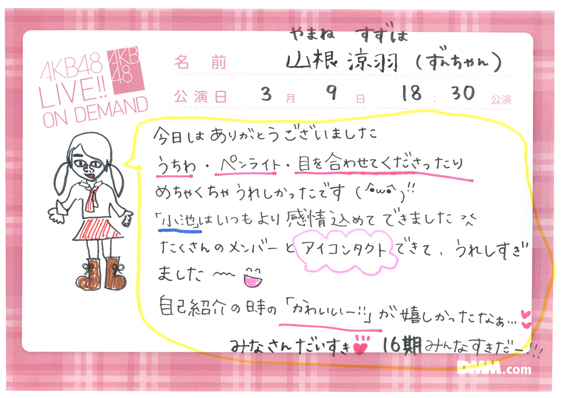 AKB48
LIVE!!
ON DEMAND
AKB
48
やまね すずは
名前 山根 涼羽 (ずんちゃん)
公演日 3月 9日 18:30 公演
今日は ありがとうございました
うちわ・ペンライト・目を合わせてくださったり
めちゃくちゃ うれしかったです (^ω^)!!
「小池」はいつもより 感情込めて できました
たくさんの メンバーと アイコンタクト できて、うれしすぎ
ました 〜〜
自己紹介の時の「かわいいー!!」が 嬉しかったなぁ...
みなさんだいすき 16期 みんなすきだー!!!
DMM.com